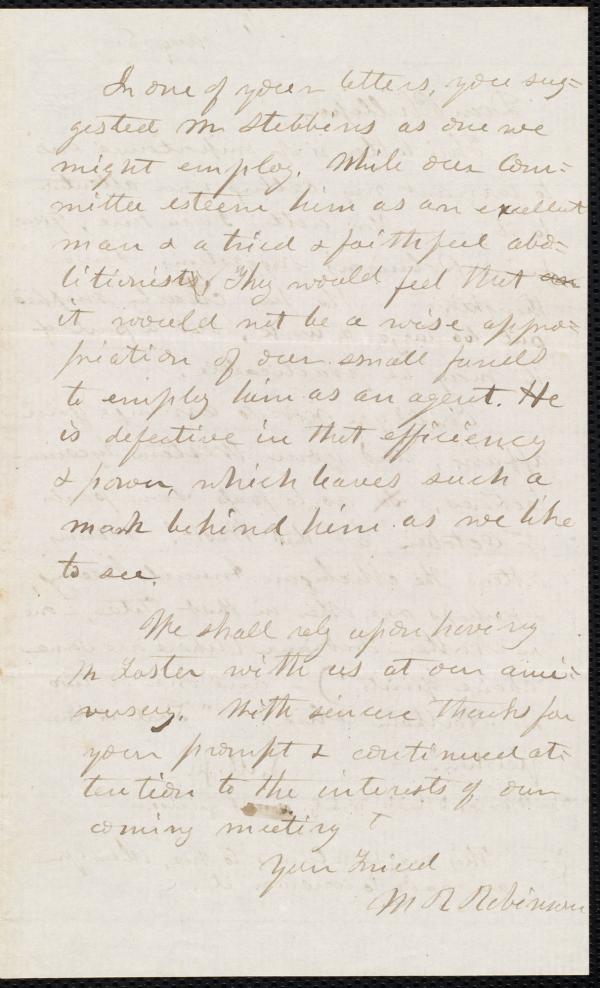 In one of your letters, you sug-
gested Mr Stebbins as one we
might employ. While our Com-
mittee esteem him as an excellent
man & a tried & faithful abo-
litionists, They would feel that an
it would not be a wise appro-
priation of our small funds
to employ him as an agent. He
is defective in that efficiency
& power, which leaves such a
mark behind him as we like
to see.
We shall rely upon having
Mr Foster with us at our anni-
versary. With sincere thanks for
your prompt & continued at-
tention to the interests of our
coming meeting
Your Friend
M R Robinson